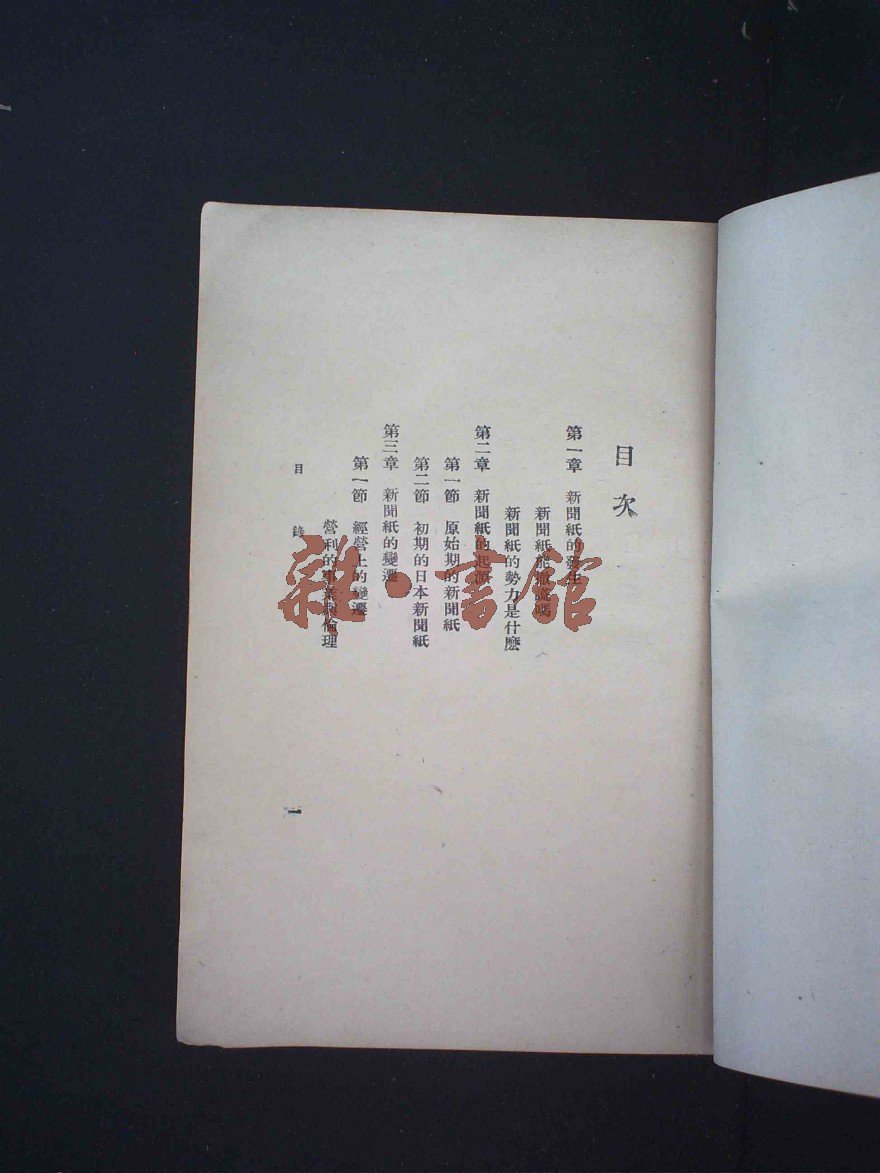 目次
第一章 新聞紙的
新聞紙能
新聞紙的勢力是什麽
第二章 新聞紙的起源
第一節 原始期的新聞紙
第二節 初期的日本新聞紙
第三章 新聞紙的變遷
第一節 經營上的變遷
營利的事業與倫理
目錄
一
雜·書館